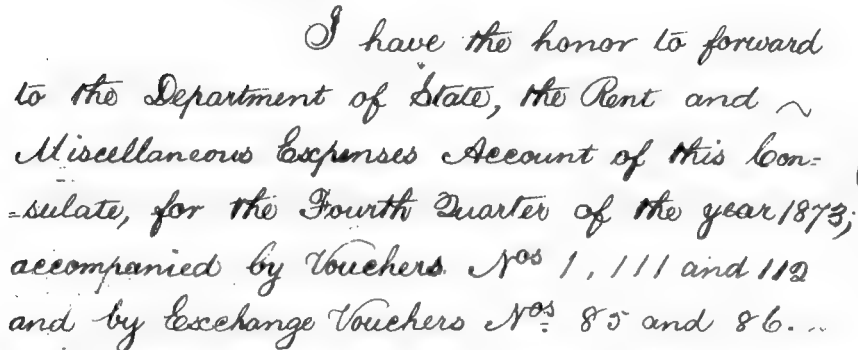 I have the honor to forward
to the Department of State, the Rent and ~
Miscellaneous Expenses Account of this Con=
=sulate, for the Fourth Quarter of the year 1873;
accompanied by Vouchers Nos 1, 111 and 112
and by Exchange Vouchers Nos 85 and 86...